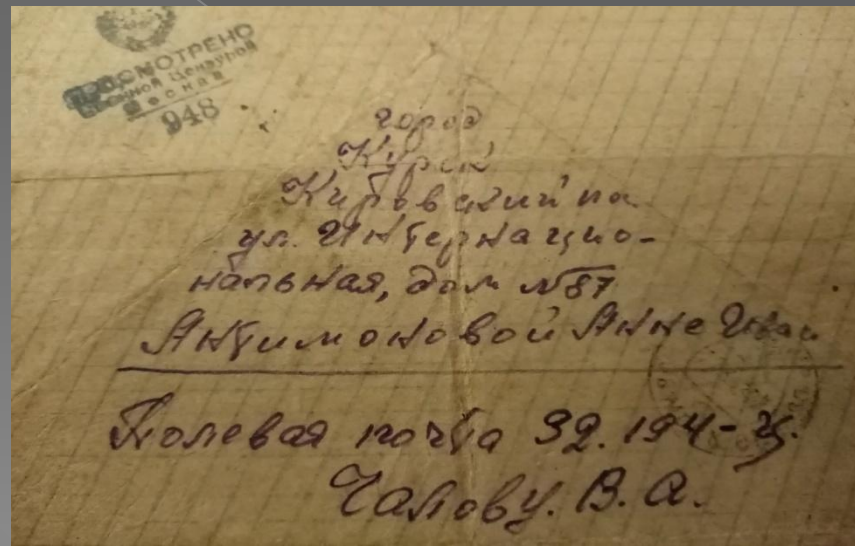 ПРОСМОТРЕНО
Военной Цензурой
Москва
948
город
Курск
Кировский па
ул. Интернацио-
нальная, дом №87
Антимоновой Анне Иван
Полевая почта 92.194-Ц.
Чалову. В. А.